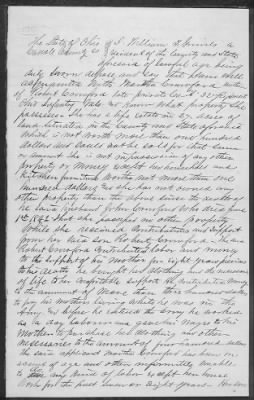 The State of Ohio } S. William
County SS } resident of the County and State
aforesaid of lawful age being
duly sworn deposes and say that I am well
acquainted With Martha Crawford mother
of Robert Crawford late private Co 32 Regiment
Ohio Infantry Vols We know What property She
possesses She has a life estate in 27 acres of
land situated in the County and State aforesaid
Which is not Worth more than one hundred
dollars and could not be sold for that same
or amount She is not in possession of any other
property or money except her household and
kitchen furniture Worth not more than one
hundred dollars She has not owned any
other property than the above since the death of
he said husband John Crawford Who died June
1st 1842 that She possesses no other property
While she received Contributions and support
from her the said son Robert Crawford. The said
Robert Crawford Contributed labor and money
to the support of his mother for eight years previous
to his death he bought her clothing and the necessaries
of life to her comfortable support He contributed money
to the amount of more than three hundred dollars
to pay his mothers living while he was in the
Army. as before he entered the army he worked
as a day labourer and gave his wages to his
mother to purchase her clothing and other
necessaries to the amount of four hundred dollars
the said applicant Martha Crawford has been on
account of age and other infirmities unable
to any kind of labor except her house
Work for the past seven or eight years.